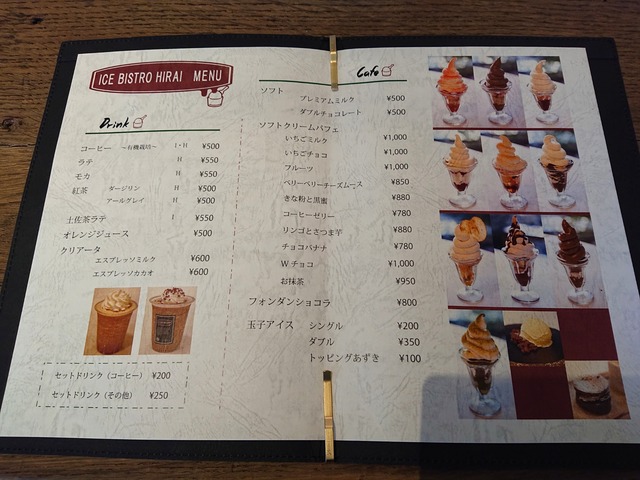 ICE BISTRO HIRAI MENU
Drink
コーヒー ～有機栽培～ I・H ¥500
ラテ H ¥550
モカ H ¥550
紅茶 ダージリン H ¥500
アールグレイ H ¥500
土佐茶ラテ I ¥550
オレンジジュース ¥500
クリアータ
エスプレッソミルク ¥600
エスプレッソカカオ ¥600
セットドリンク（コーヒー） ¥200
セットドリンク（その他） ¥250
Cafe
ソフト
プレミアムミルク ¥500
ダブルチョコレート ¥500
ソフトクリームパフェ
いちごミルク ¥1,000
いちごチョコ ¥1,000
フルーツ ¥1,000
ベリーベリーチーズムース ¥850
きな粉と黒蜜 ¥880
コーヒーゼリー ¥780
リンゴとさつま芋 ¥880
チョコバナナ ¥780
Wチョコ ¥1,000
お抹茶 ¥950
フォンダンショコラ ¥800
玉子アイス シングル ¥200
ダブル ¥350
トッピングあずき ¥100